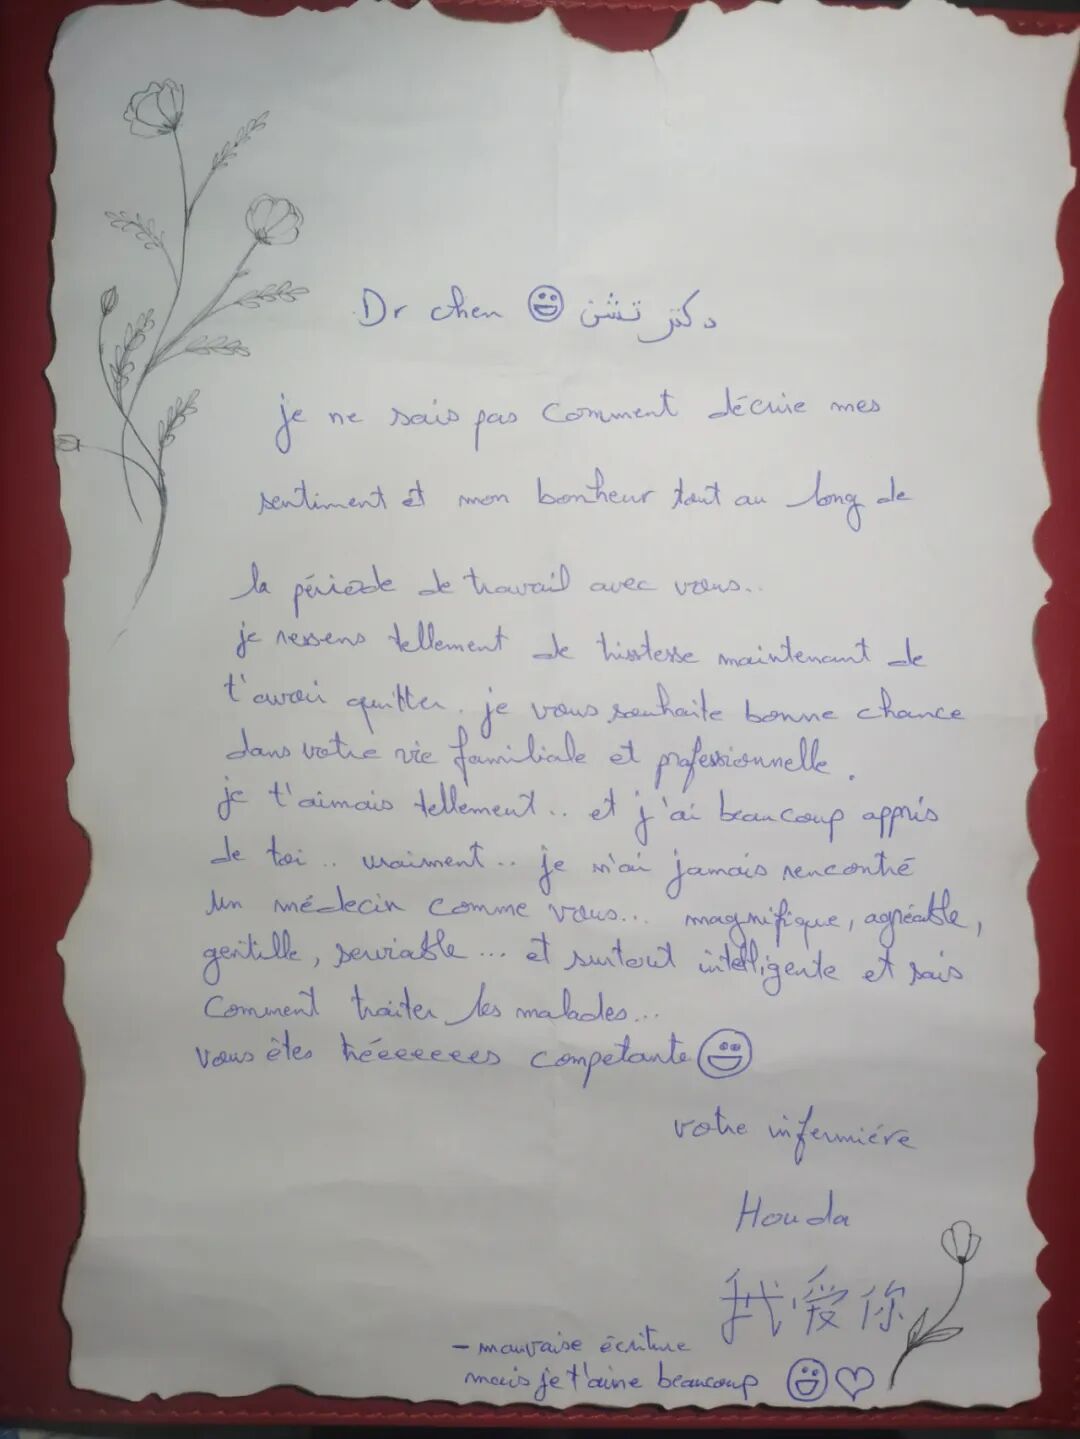 Dr chen دكتر تشن
je ne sais pas comment décrire mes
sentiment et mon bonheur tout au long de
la période de travail avec vous..
je ressens tellement de tristesse maintenant de
t'avoir quitter. je vous souhaite bonne chance
dans votre vie familiale et professionnelle.
je t'aimais tellement.. et j'ai beaucoup appris
de toi.. vraiment.. je n'ai jamais rencontré
un médecin comme vous... magnifique, agréable,
gentille, serviable... et surtout intelligente et sais
comment traiter les malades...
vous êtes trééeeeeees competante
votre infermiére
Houda
我爱你
- mauvaise écriture
mais je t'aime beaucoup